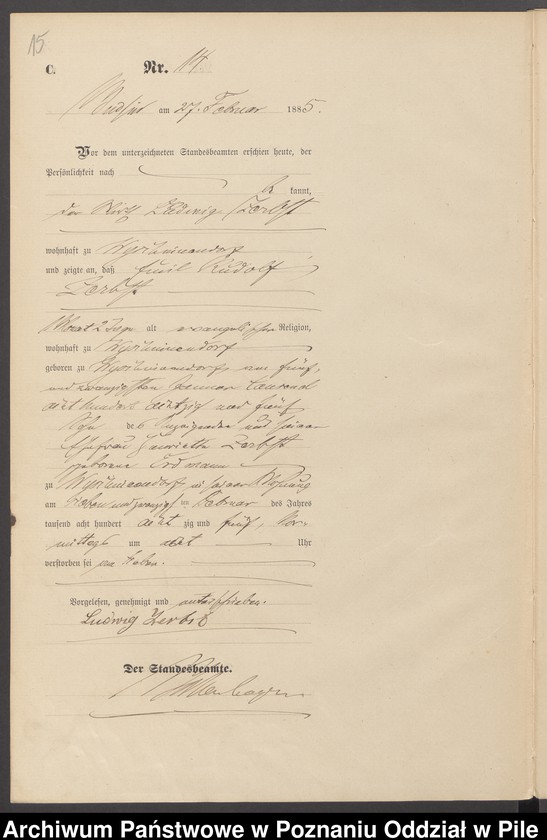 15
C. Nr. 14.
am 27. Februar 1885.
Vor dem unterzeichneten Standesbeamten erschien heute, der
Persönlichkeit nach
be kannt,
der Wirth Ludwig Zerbst
wohnhaft zu
und zeigte an, daß Emil Rudolf
Zerbst
1 Monat 2 Tage alt evangelischer Religion,
wohnhaft zu
geboren zu am fünf
und zwanzigsten Januar tausend
acht hundert achtzig und fünf
Sohn des Anzeigenden und seiner
Ehefrau Henriette Zerbst
geborene Erdmann
zu in seiner Wohnung
am sieben und zwanzigsten Februar des Jahres
tausend acht hundert acht zig und fünf, Vor-
mittags um acht Uhr
verstorben sei
Vorgelesen, genehmigt und unterschrieben.
Ludwig Zerbst
Der Standesbeamte.
Archiwum Państwowe w Poznaniu Oddział w Pile